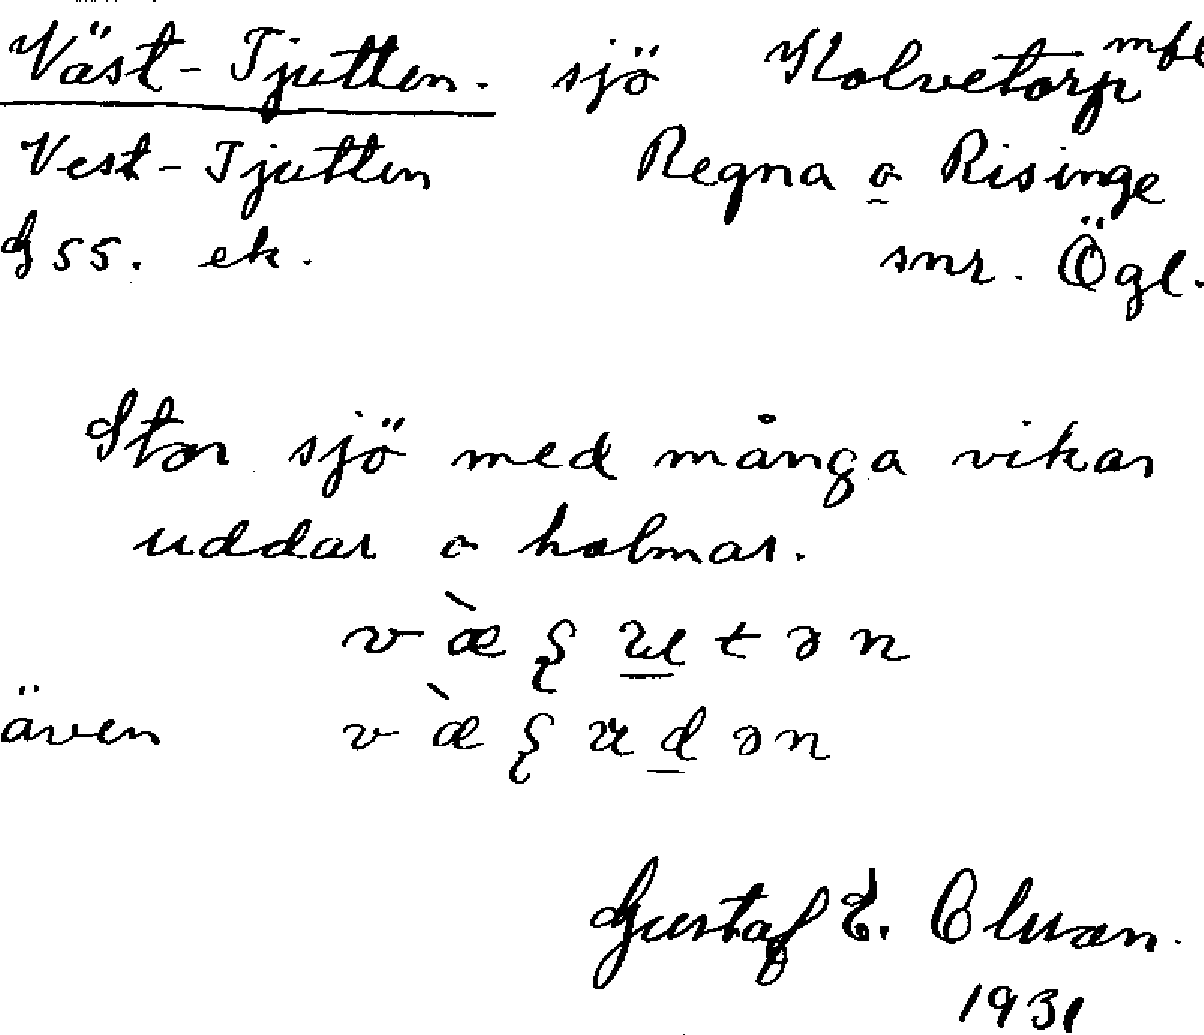 Väst-Tjutten. sjö Kolvetorp mbl
Vest-Tjutten Regna o Risinge
G 55. ek. snr. Ögl.
Stor sjö med många vikar
uddar o holmar.
även
Gustaf E.
1931